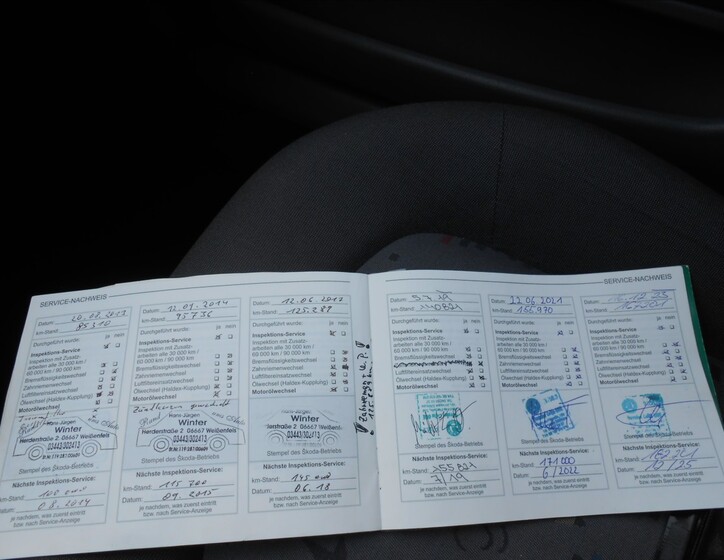 SERVICE-NACHWEIS
Datum: 20.08.2013
km-Stand: 85310
Durchgeführt wurde: ja nein
Inspektions-Service
Inspektion mit Zusatz-
arbeiten alle 30 000 km /
60 000 km / 90 000 km
Bremsflüssigkeitswechsel
Zahnriemenwechsel
Luftfiltereinsatzwechsel
Ölwechsel (Haldex-Kupplung)
Motorölwechsel
Hans-Jürgen
Winter
Herderstraße 2 06667 Weißenfels
03443/302413
Stempel des Škoda-Betriebs
Nächste Inspektions-Service:
km-Stand:
Datum: 08.2014
ja nachdem, was zuerst eintritt
bzw. nach Service-Anzeige
Datum: 12.09.2014
km-Stand: 95736
Durchgeführt wurde: ja nein
Inspektions-Service
Inspektion mit Zusatz-
arbeiten alle 30 000 km /
60 000 km / 90 000 km
Bremsflüssigkeitswechsel
Zahnriemenwechsel
Luftfiltereinsatzwechsel
Ölwechsel (Haldex-Kupplung)
Motorölwechsel
Hans-Jürgen
Winter
Herderstraße 2 06667 Weißenfels
03443/302413
Stempel des Škoda-Betriebs
Nächste Inspektions-Service:
km-Stand: 115 700
Datum: 09.2015
ja nachdem, was zuerst eintritt
bzw. nach Service-Anzeige
Datum: 12.06.2017
km-Stand: 125.289
Durchgeführt wurde: ja nein
Inspektions-Service
Inspektion mit Zusatz-
arbeiten alle 30 000 km /
60 000 km / 90 000 km
Bremsflüssigkeitswechsel
Zahnriemenwechsel
Luftfiltereinsatzwechsel
Ölwechsel (Haldex-Kupplung)
Motorölwechsel
Hans-Jürgen
Winter
Stempel des Škoda-Betriebs
Nächste Inspektions-Service:
km-Stand:
Datum: 06.18
ja nachdem, was zuerst eintritt
bzw. nach Service-Anzeige
SERVICE-NACHWEIS
Datum:
km-Stand: 140821
Durchgeführt wurde: ja nein
Inspektions-Service
Inspektion mit Zusatz-
arbeiten alle 30 000 km /
60 000 km / 90 000 km
Bremsflüssigkeitswechsel
Luftfiltereinsatzwechsel
Ölwechsel (Haldex-Kupplung)
Motorölwechsel
Stempel des Škoda-Betriebs
Nächste Inspektions-Service:
km-Stand: 155 821
Datum: 7/19
ja nachdem, was zuerst eintritt
bzw. nach Service-Anzeige
Datum: 22.06.2021
km-Stand: 156.970
Durchgeführt wurde: ja nein
Inspektions-Service
Inspektion mit Zusatz-
arbeiten alle 30 000 km /
60 000 km / 90 000 km
Bremsflüssigkeitswechsel
Zahnriemenwechsel
Luftfiltereinsatzwechsel
Ölwechsel (Haldex-Kupplung)
Motorölwechsel
Stempel des Škoda-Betriebs
Nächste Inspektions-Service:
km-Stand: 171 000
Datum: 6/2022
ja nachdem, was zuerst eintritt
bzw. nach Service-Anzeige
Datum:
km-Stand:
Durchgeführt wurde: ja nein
Inspektions-Service
Inspektion mit Zusatz-
arbeiten alle 30 000 km /
60 000 km / 90 000 km
Bremsflüssigkeitswechsel
Zahnriemenwechsel
Luftfiltereinsatzwechsel
Ölwechsel (Haldex-Kupplung)
Motorölwechsel
Stempel des Škoda-Betriebs
Nächste Inspektions-Service:
km-Stand:
Datum:
ja nachdem, was zuerst eintritt
bzw. nach Service-Anzeige